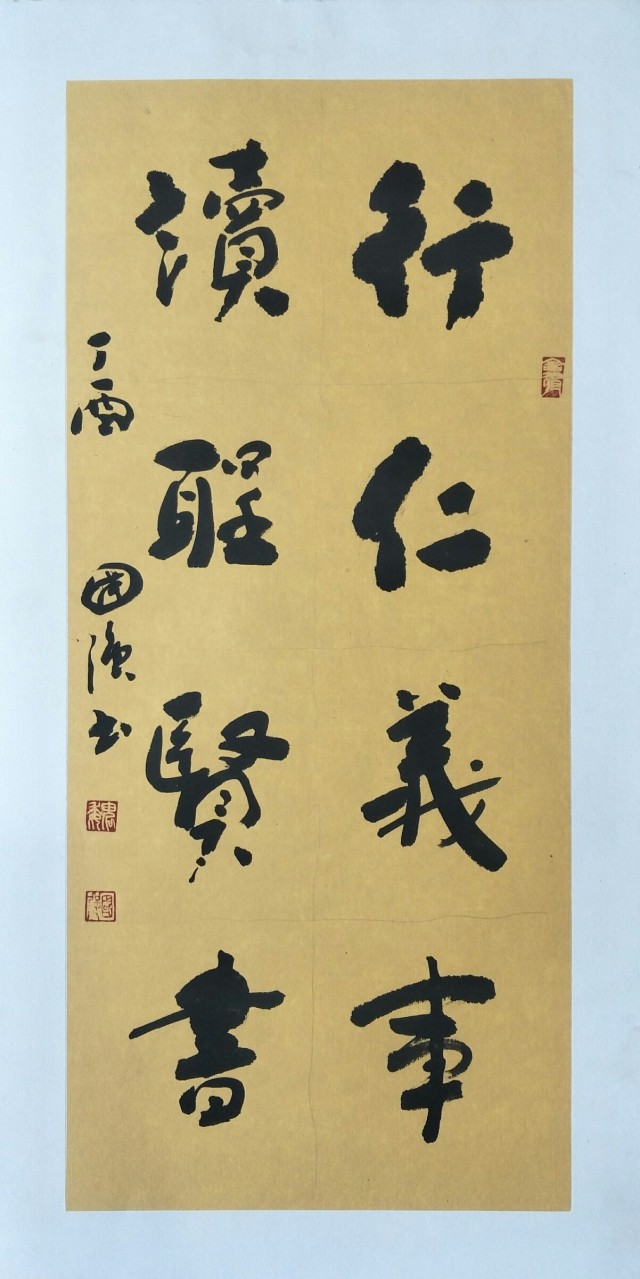 行仁義事
讀聖賢書
丁酉 國濱書